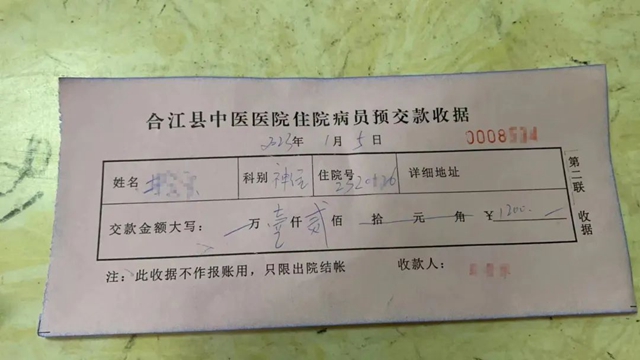 合江县中医医院住院病员预交款收据
2023年1月5日 0008
姓名 科别 神 住院号 详细地址
交款金额大写： 万壹仟贰佰 拾 元 角 ￥1200.
注：此收据不作报账用，只限出院结帐 收款人：
第二联 收据